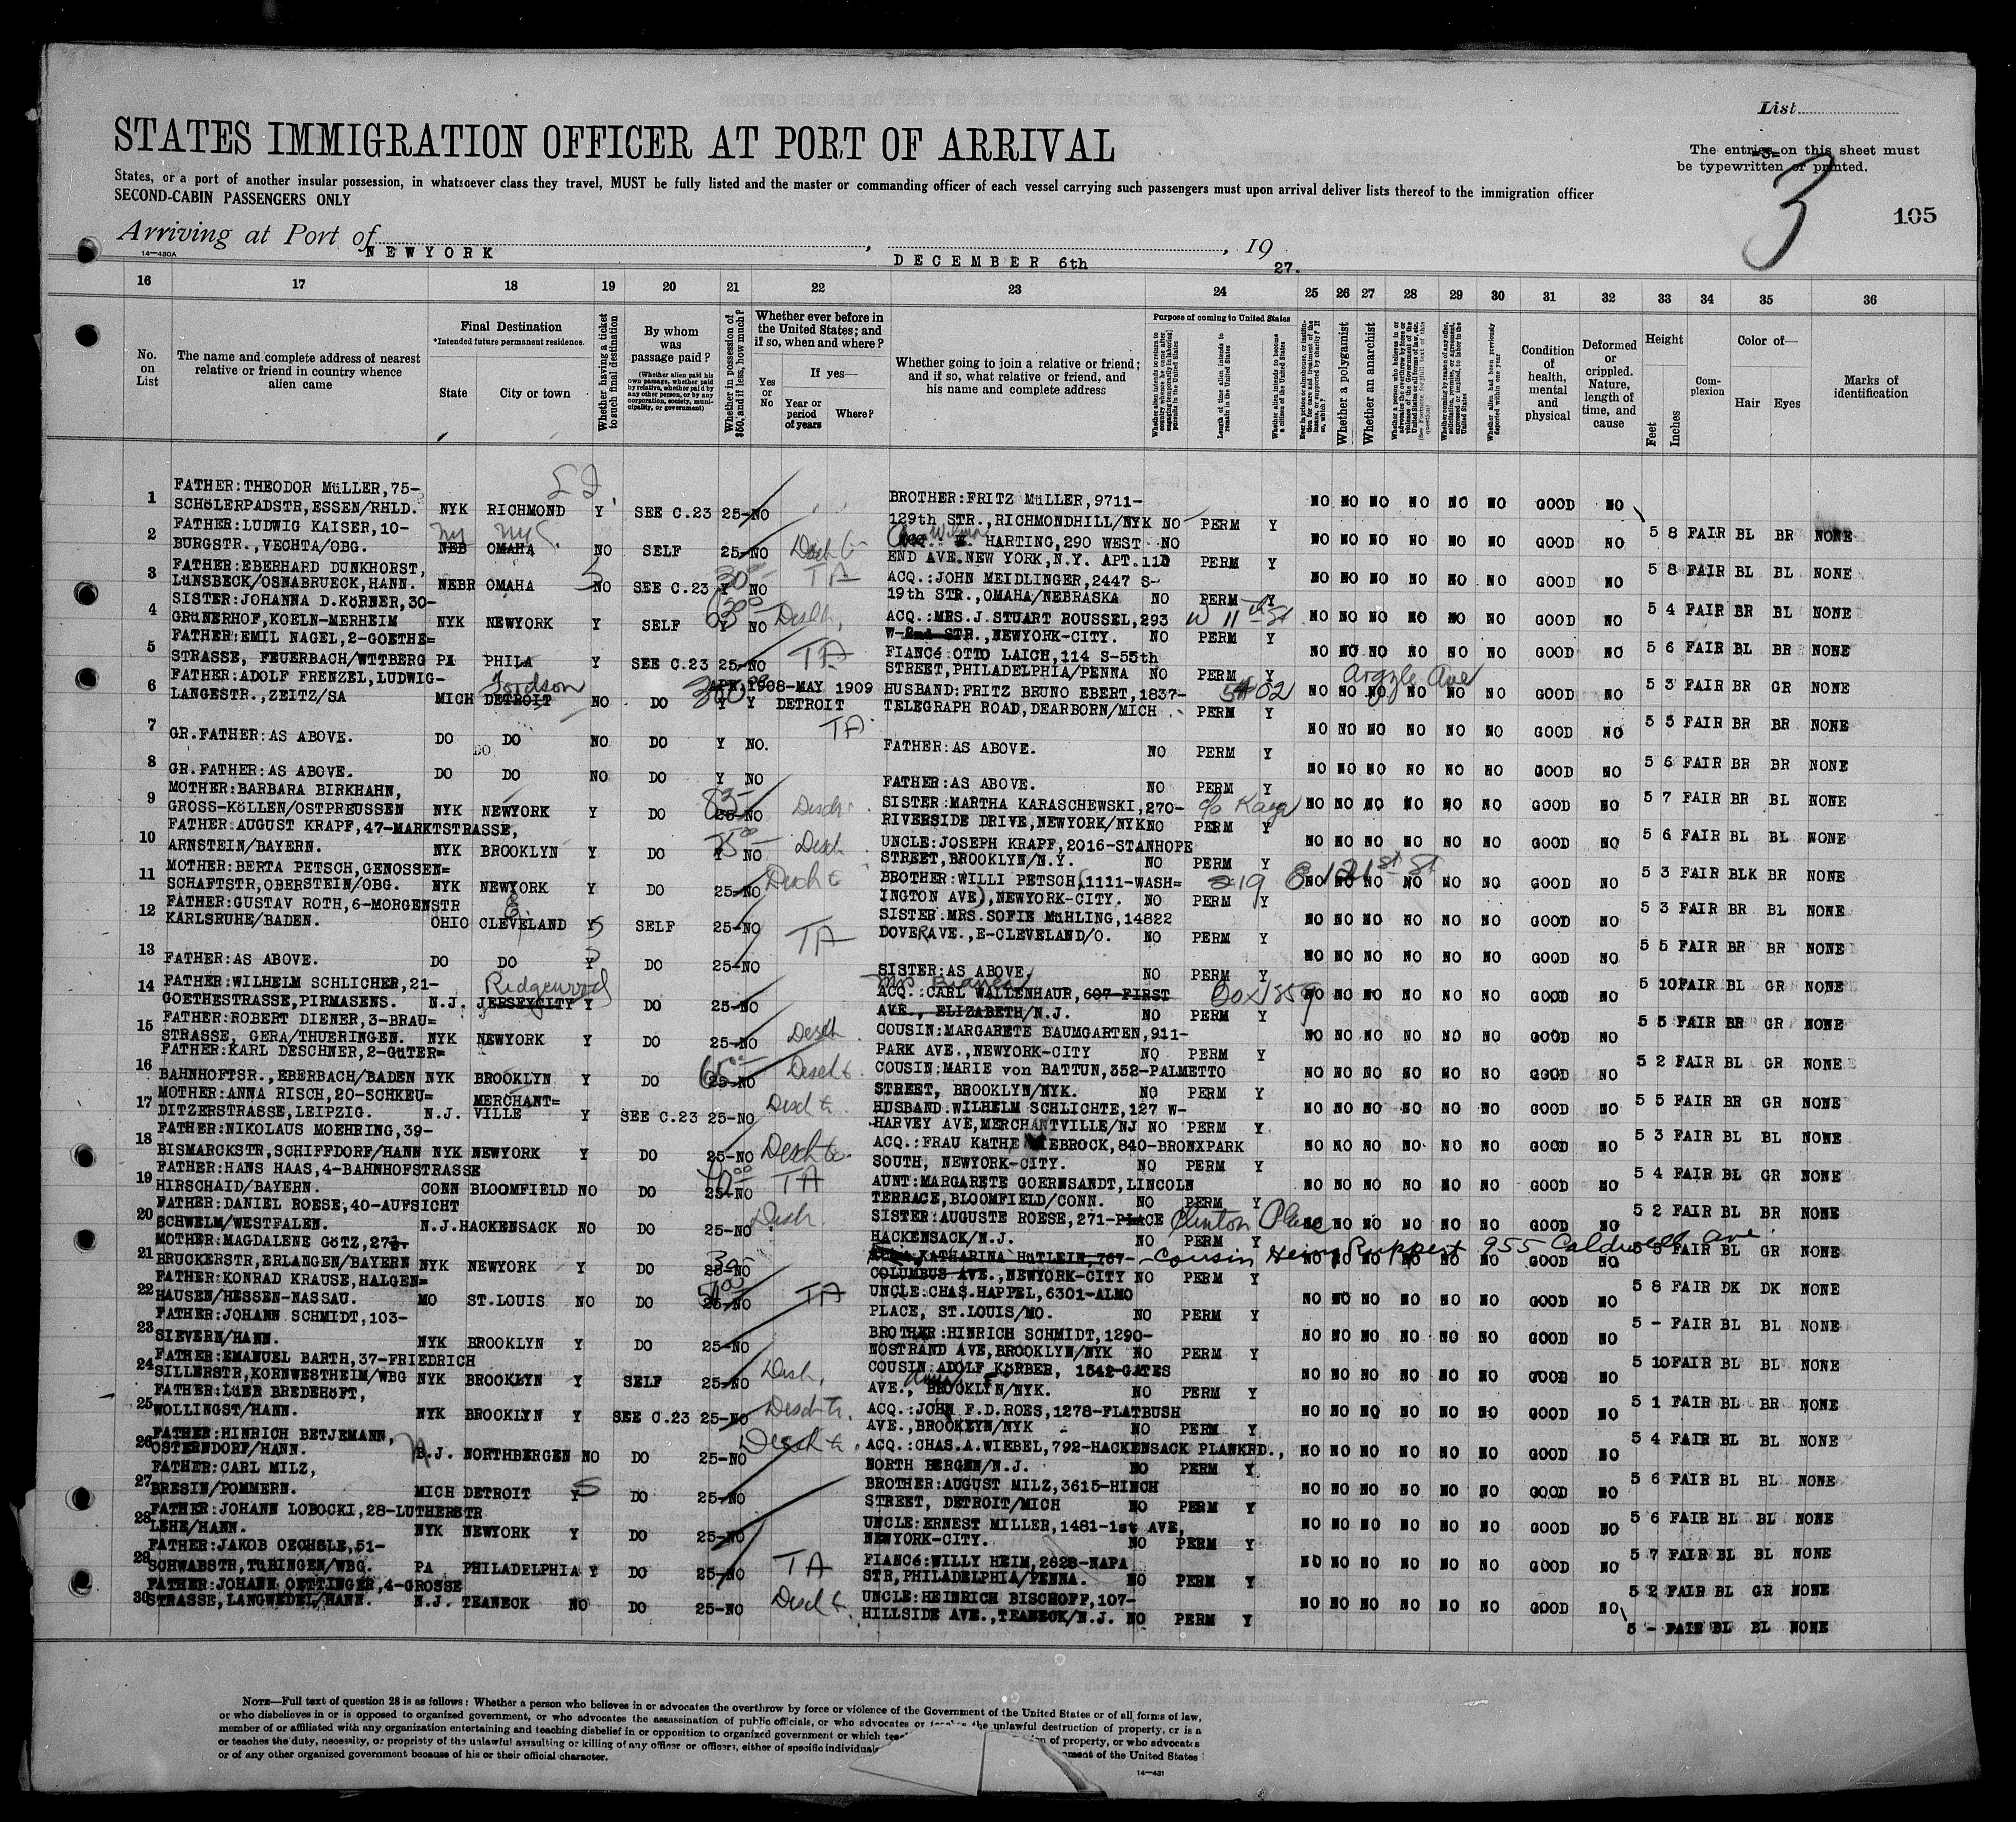 List
The entries on this sheet must
be typewritten or printed.
-3-
3
105
STATES IMMIGRATION OFFICER AT PORT OF ARRIVAL
States, or a port of another insular possession, in whatsoever class they travel, MUST be fully listed and the master or commanding officer of each vessel carrying such passengers must upon arrival deliver lists thereof to the immigration officer
SECOND-CABIN PASSENGERS ONLY
Arriving at Port of NEWYORK, DECEMBER 6th, 19 27.
14—430A
16 17 18 19 20 21 22 23 24 25 26 27 28 29 30 31 32 33 34 35 36
No. on List
The name and complete address of nearest relative or friend in country whence alien came
Final Destination
*Intended future permanent residence.
State
City or town
Whether having a ticket to such final destination
By whom was passage paid?
(Whether alien paid his own passage, whether paid by relative, whether paid by any other person, or by any corporation, society, municipality, or government)
Whether in possession of $50, and if less, how much?
Whether ever before in the United States; and if so, when and where?
Yes or No
If yes—
Year or period of years
Where?
Whether going to join a relative or friend; and if so, what relative or friend, and his name and complete address
Purpose of coming to United States
Whether alien intends to return to country whence he came after engaging temporarily in laboring pursuits in the United States
Length of time alien intends to remain in the United States
Whether alien intends to become a citizen of the United States
Whether a polygamist
Whether an anarchist
Whether alien had been previously deported within one year
Condition of health, mental and physical
Deformed or crippled. Nature, length of time, and cause
Height
Feet
Inches
Complexion
Color of—
Hair
Eyes
Marks of identification
1 FATHER:THEODOR MüLLER,75-
SCHöLERPADSTR,ESSEN/RHLD. NYK RICHMOND Y SEE C.23 25-NO BROTHER:FRITZ MüLLER,9711-
129th STR.,RICHMONDHILL/NYK NO PERM Y NO NO NO NO NO NO GOOD NO 5 8 FAIR BL BR NONE
2 FATHER:LUDWIG KAISER,10-
BURGSTR.,VECHTA/OBG. NEB OMAHA NY NYC NO SELF 25-NO HARTING,290 WEST
END AVE.NEW YORK,N.Y. APT.11D NO PERM Y NO NO NO NO NO NO GOOD NO 5 8 FAIR BL BL NONE
3 FATHER:EBERHARD DUNKHORST,
LüNSBECK/OSNABRUECK,HANN. NEBR OMAHA NO SEE C.23 Y NO TA ACQ.:JOHN MEIDLINGER,2447 S-
19th STR.,OMAHA/NEBRASKA NO PERM Y NO NO NO NO NO NO GOOD NO 5 4 FAIR BR BL NONE
4 SISTER:JOHANNA D.KöRNER,30-
GRüNERHOF,KOELN-MERHEIM NYK NEWYORK Y SELF Y NO ACQ.:MRS.J.STUART ROUSSEL,293 W 11th St
W-2nd STR.,NEWYORK-CITY. NO PERM Y NO NO NO NO NO NO GOOD NO 5 6 FAIR BL BR NONE
5 FATHER:EMIL NAGEL,2-GOETHE=
STRASSE, FEUERBACH/WTTBERG PA PHILA Y SEE C.23 25-NO TA FIANCé:OTTO LAICH,114 S-55th
STREET,PHILADELPHIA/PENNA NO PERM Y NO NO NO NO NO NO GOOD NO 5 3 FAIR BR GR NONE
6 FATHER:ADOLF FRENZEL,LUDWIG-
LANGESTR.,ZEITZ/SA MICH DETROIT Fordson NO DO 300 Y Y APR.1908-MAY 1909 DETROIT HUSBAND:FRITZ BRUNO EBERT,1837-
TELEGRAPH ROAD,DEARBORN/MICH 5402 Argyle Ave PERM Y NO NO NO NO NO NO GOOD NO 5 5 FAIR BR BR NONE
7 GR.FATHER:AS ABOVE. DO DO NO DO Y NO. TA FATHER:AS ABOVE. NO PERM Y NO NO NO NO NO NO GOOD NO 5 6 FAIR BR BR NONE
8 GR.FATHER:AS ABOVE. DO DO NO DO Y NO FATHER:AS ABOVE. NO PERM Y NO NO NO NO NO NO GOOD NO 5 7 FAIR BR BL NONE
9 MOTHER:BARBARA BIRKHAHN,
GROSS-KöLLEN/OSTPREUSSEN NYK NEWYORK Y DO 25-NO SISTER:MARTHA KARASCHEWSKI,270-
RIVERSIDE DRIVE,NEWYORK/NYK NO PERM Y NO NO NO NO NO NO GOOD NO 5 6 FAIR BL BL NONE
10 FATHER:AUGUST KRAPF,47-MARKTSTRASSE,
ARNSTEIN/BAYERN. NYK BROOKLYN Y DO Y NO UNCLE:JOSEPH KRAPF,2016-STANHOPE
STREET,BROOKLYN/N.Y. NO PERM Y NO NO NO NO NO NO GOOD NO 5 3 FAIR BLK BR NONE
11 MOTHER:BERTA PETSCH,GENOSSEN=
SCHAFTSTR,OBERSTEIN/OBG. NYK NEWYORK Y DO 25-NO BROTHER:WILLI PETSCH(1111-WASH=
INGTON AVE),NEWYORK-CITY. 219 E 121st St NO PERM Y NO NO NO NO NO NO GOOD NO 5 3 FAIR BR BL NONE
12 FATHER:GUSTAV ROTH,6-MORGENSTR
KARLSRUHE/BADEN. OHIO E. CLEVELAND Y SELF 25-NO TA SISTER:MRS.SOFIE MüHLING,14822
DOVERAVE.,E-CLEVELAND/O. NO PERM Y NO NO NO NO NO NO GOOD NO 5 5 FAIR BR BR NONE
13 FATHER:AS ABOVE. DO DO Y DO 25-NO SISTER:AS ABOVE. NO PERM Y NO NO NO NO NO NO GOOD NO 5 10FAIR BL GR NONE
14 FATHER:WILHELM SCHLICHER,21-
GOETHESTRASSE,PIRMASENS. N.J. JERSEYCITY Ridgewood Y DO 25-NO ACQ.:CARL WALLENHAUR,607-FIRST Box 859
AVE., ELIZABETH/N.J. NO PERM Y NO NO NO NO NO NO GOOD NO 5 5 FAIR BR GR NONE
15 FATHER:ROBERT DIENER,3-BRAU=
STRASSE, GERA/THUERINGEN. NYK NEWYORK Y DO 25-NO COUSIN:MARGARETE BAUMGARTEN,911-
PARK AVE.,NEWYORK-CITY NO PERM Y NO NO NO NO NO NO GOOD NO 5 2 FAIR BL GR NONE
16 FATHER:KARL DESCHNER,2-GüTER=
BAHNHOFTSR.,EBERBACH/BADEN NYK BROOKLYN Y DO 25-NO COUSIN:MARIE von BATTUN,352-PALMETTO
STREET, BROOKLYN/NYK. NO PERM Y NO NO NO NO NO NO GOOD NO 5 5 FAIR BR GR NONE
17 MOTHER:ANNA RISCH,20-SCHKEU=
DITZERSTRASSE,LEIPZIG. N.J. MERCHANT=VILLE Y SEE C.23 25-NO HUSBAND:WILHELM SCHLICHTE,127 W-
HARVEY AVE,MERCHANTVILLE/NJ NO PERM Y NO NO NO NO NO NO GOOD NO 5 3 FAIR BL BL NONE
18 FATHER:NIKOLAUS MOEHRING,39-
BISMARCKSTR,SCHIFFDORF/HANN NYK NEWYORK Y DO 25-NO ACQ.:FRAU KäTHE 840-BRONXPARK
SOUTH, NEWYORK-CITY. NO PERM Y NO NO NO NO NO NO GOOD NO 5 4 FAIR BL GR NONE
19 FATHER:HANS HAAS,4-BAHNHOFSTRASSE
HIRSCHAID/BAYERN. CONN BLOOMFIELD NO DO 25-NO TA AUNT:MARGARETE GOERNSANDT,LINCOLN
TERRACE,BLOOMFIELD/CONN. NO PERM Y NO NO NO NO NO NO GOOD NO 5 2 FAIR BL BR NONE
20 FATHER:DANIEL ROESE,40-AUFSICHT
SCHWELM/WESTFALEN. N.J.HACKENSACK NO DO 25-NO SISTER:AUGUSTE ROESE,271-PLACE Clinton Place
HACKENSACK/N.J. NO PERM Y NO NO NO NO NO NO GOOD NO 5 5 FAIR BL GR NONE
21 MOTHER:MAGDALENE GöTZ,27
BRUCKERSTR,ERLANGEN/BAYERN NYK NEWYORK Y DO 25-NO KATHARINA HüTLEIN,767- Cousin Henry Ruppert 955 Caldwell Ave.
COLUMBUS AVE.,NEWYORK-CITY NO PERM Y NO NO NO NO NO NO GOOD NO 5 8 FAIR DK DK NONE
22 FATHER:KONRAD KRAUSE,HALGEN=
HAUSEN/HESSEN-NASSAU. MO ST.LOUIS NO DO 25-NO TA UNCLE:CHAS.HAPPEL,6301-ALMO
PLACE, ST.LOUIS/MO. NO PERM Y NO NO NO NO NO NO GOOD NO 5 - FAIR BL BL NONE
23 FATHER:JOHANN SCHMIDT,103-
SIEVERN/HANN. NYK BROOKLYN Y DO 25-NO BROTHER:HINRICH SCHMIDT,1290-
NOSTRAND AVE,BROOKLYN/NYK NO PERM Y NO NO NO NO NO NO GOOD NO 5 10FAIR BL BL NONE
24 FATHER:EMANUEL BARTH,37-FRIEDRICH
SILLERSTR,KORNWESTHEIM/WBG NYK BROOKLYN Y SELF 25-NO COUSIN:ADOLF KöRBER, 1542-GATES
AVE., BROOKLYN/NYK. NO PERM Y NO NO NO NO NO NO GOOD NO 5 1 FAIR BL BR NONE
25 FATHER:LüER BREDEHöFT,
WOLLINGST/HANN. NYK BROOKLYN Y SEE C.23 25-NO ACQ.:JOHN F.D.ROES,1278-FLATBUSH
AVE.,BROOKLYN/NYK PERM Y NO NO NO NO NO NO GOOD NO 5 4 FAIR BL BL NONE
26 FATHER:HINRICH BETJEMANN,
OSTERNDORF/HANN. N.J. NORTHBERGEN NO DO 25-NO ACQ.:CHAS.A.WIEBEL,792-HACKENSACK PLANKRD.,
NORTH BERGEN/N.J. NO PERM Y NO NO NO NO NO NO GOOD NO 5 6 FAIR BL BL NONE
27 FATHER:CARL MILZ,
BRESIN/POMMERN. MICH DETROIT Y DO 25-NO BROTHER:AUGUST MILZ,3615-HINCH
STREET, DETROIT/MICH NO PERM Y NO NO NO NO NO NO GOOD NO 5 6 FAIR BL BL NONE
28 FATHER:JOHANN LOBOCKI,28-LUTHERSTR
LEHE/HANN. NYK NEWYORK Y DO 25-NO UNCLE:ERNEST MILLER,1481-1st AVE,
NEWYORK-CITY. NO PERM Y NO NO NO NO NO NO GOOD NO 5 7 FAIR BL BL NONE
29 FATHER:JAKOB OECHSLE,51-
SCHWABSTR,TüBINGEN/WBG. PA PHILADELPHIA Y DO 25-NO TA FIANCé:WILLY HEIM,2628-NAPA
STR,PHILADELPHIA/PENNA. NO PERM Y NO NO NO NO NO NO GOOD NO 5 2 FAIR BL GR NONE
30 FATHER:JOHANN OETTINGER,4-GROSSE
STRASSE,LANGWEDEL/HANN. N.J. TEANECK NO DO 25-NO UNCLE:HEINRICH BISCHOFF,107-
HILLSIDE AVE.,TEANECK/N.J. NO PERM Y NO NO NO NO NO NO GOOD NO 5 - FAIR BL BL NONE
NOTE—Full text of question 28 is as follows: Whether a person who believes in or advocates the overthrow by force or violence of the Government of the United States or of all forms of law,
or who disbelieves in or is opposed to organized government, or who advocates the assassination of public officials, or who advocates or teaches the unlawful destruction of property, or is a
member of or affiliated with any organization entertaining and teaching disbelief in or opposition to organized government or which
or teaches the duty, necessity, or propriety of the unlawful assaulting or killing of any officer or officers, either of specific individuals of property, or who advocates
or of any other organized government because of his or their official character. of the United States
14—431